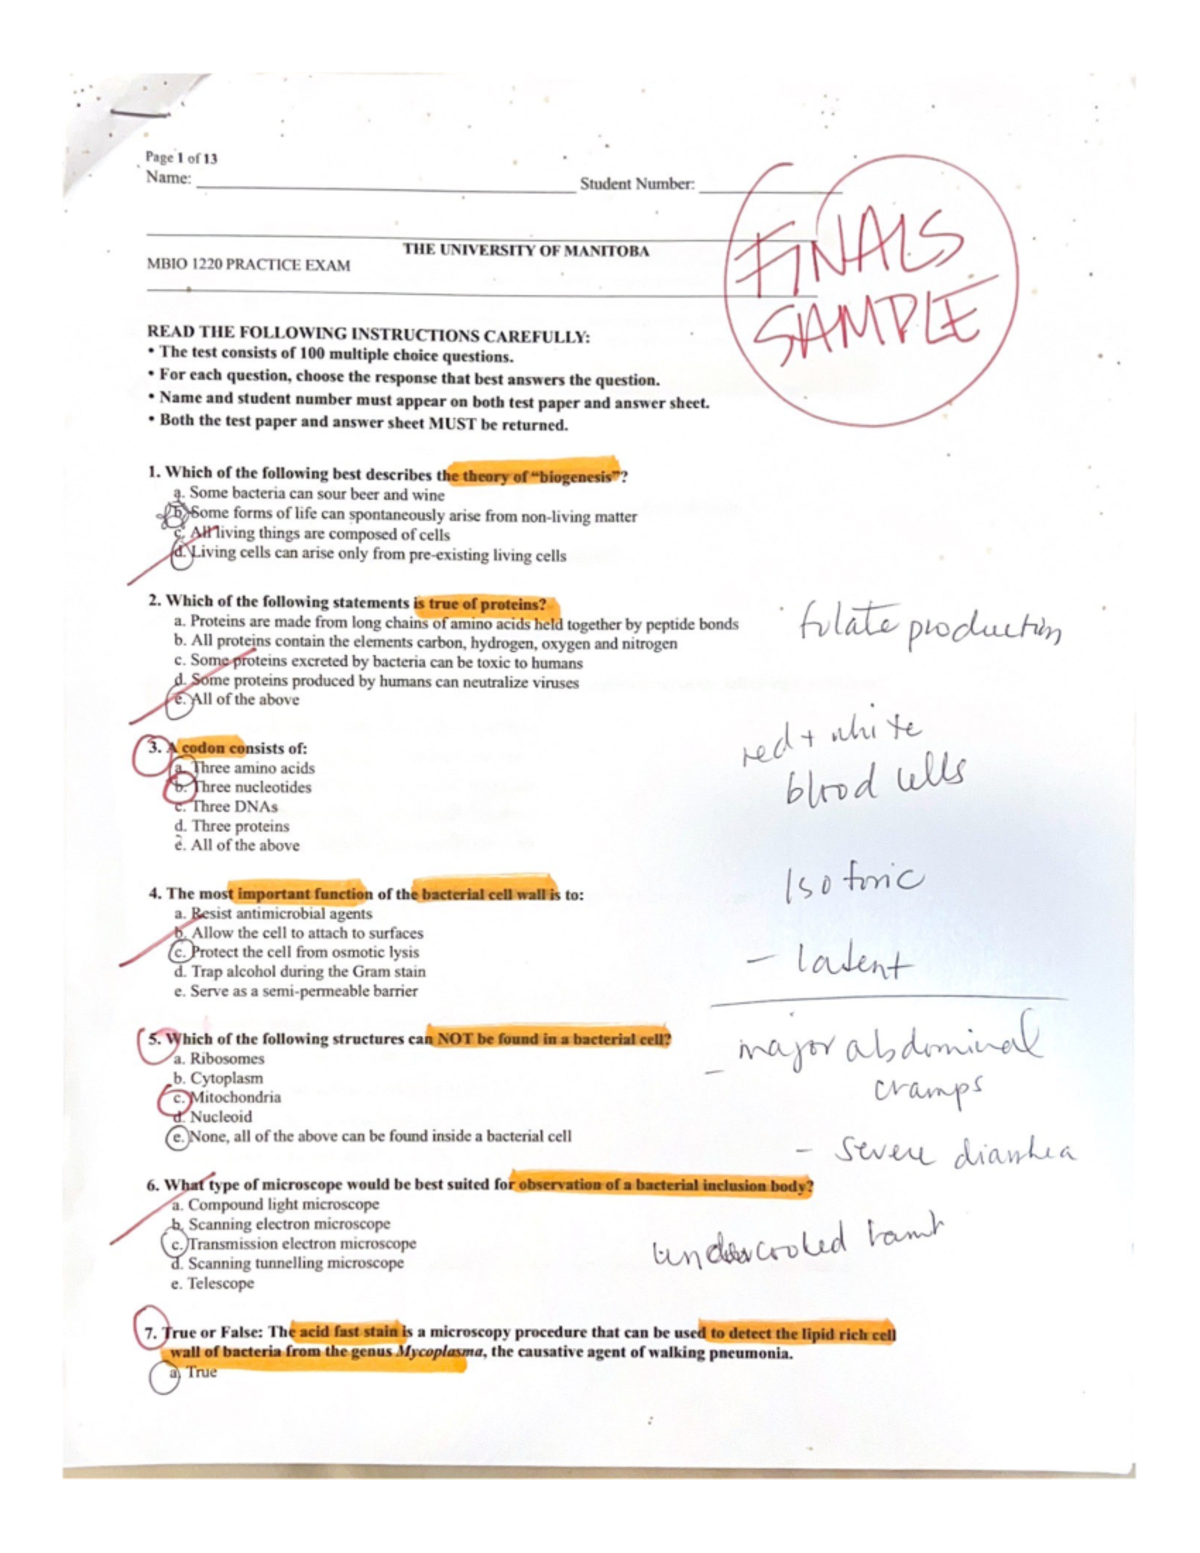 Page 1 of 13
Name: Student Number:
FINALS
SAMPLE
THE UNIVERSITY OF MANITOBA
MBIO 1220 PRACTICE EXAM
READ THE FOLLOWING INSTRUCTIONS CAREFULLY:
• The test consists of 100 multiple choice questions.
• For each question, choose the response that best answers the question.
• Name and student number must appear on both test paper and answer sheet.
• Both the test paper and answer sheet MUST be returned.
1. Which of the following best describes the theory of "biogenesis"?
a. Some bacteria can sour beer and wine
b. Some forms of life can spontaneously arise from non-living matter
c. All living things are composed of cells
d. Living cells can arise only from pre-existing living cells
2. Which of the following statements is true of proteins?
a. Proteins are made from long chains of amino acids held together by peptide bonds
b. All proteins contain the elements carbon, hydrogen, oxygen and nitrogen
c. Some proteins excreted by bacteria can be toxic to humans
d. Some proteins produced by humans can neutralize viruses
e. All of the above
folate production
3. A codon consists of:
a. Three amino acids
b. Three nucleotides
c. Three DNAs
d. Three proteins
e. All of the above
red + white
blood cells
4. The most important function of the bacterial cell wall is to:
a. Resist antimicrobial agents
b. Allow the cell to attach to surfaces
c. Protect the cell from osmotic lysis
d. Trap alcohol during the Gram stain
e. Serve as a semi-permeable barrier
Isotonic
- latent
5. Which of the following structures can NOT be found in a bacterial cell?
a. Ribosomes
b. Cytoplasm
c. Mitochondria
d. Nucleoid
e. None, all of the above can be found inside a bacterial cell
- major abdominal
cramps
- severe diarrhea
6. What type of microscope would be best suited for observation of a bacterial inclusion body?
a. Compound light microscope
b. Scanning electron microscope
c. Transmission electron microscope
d. Scanning tunnelling microscope
e. Telescope
7. True or False: The acid fast stain is a microscopy procedure that can be used to detect the lipid rich cell
wall of bacteria from the genus Mycoplasma, the causative agent of walking pneumonia.
a. True